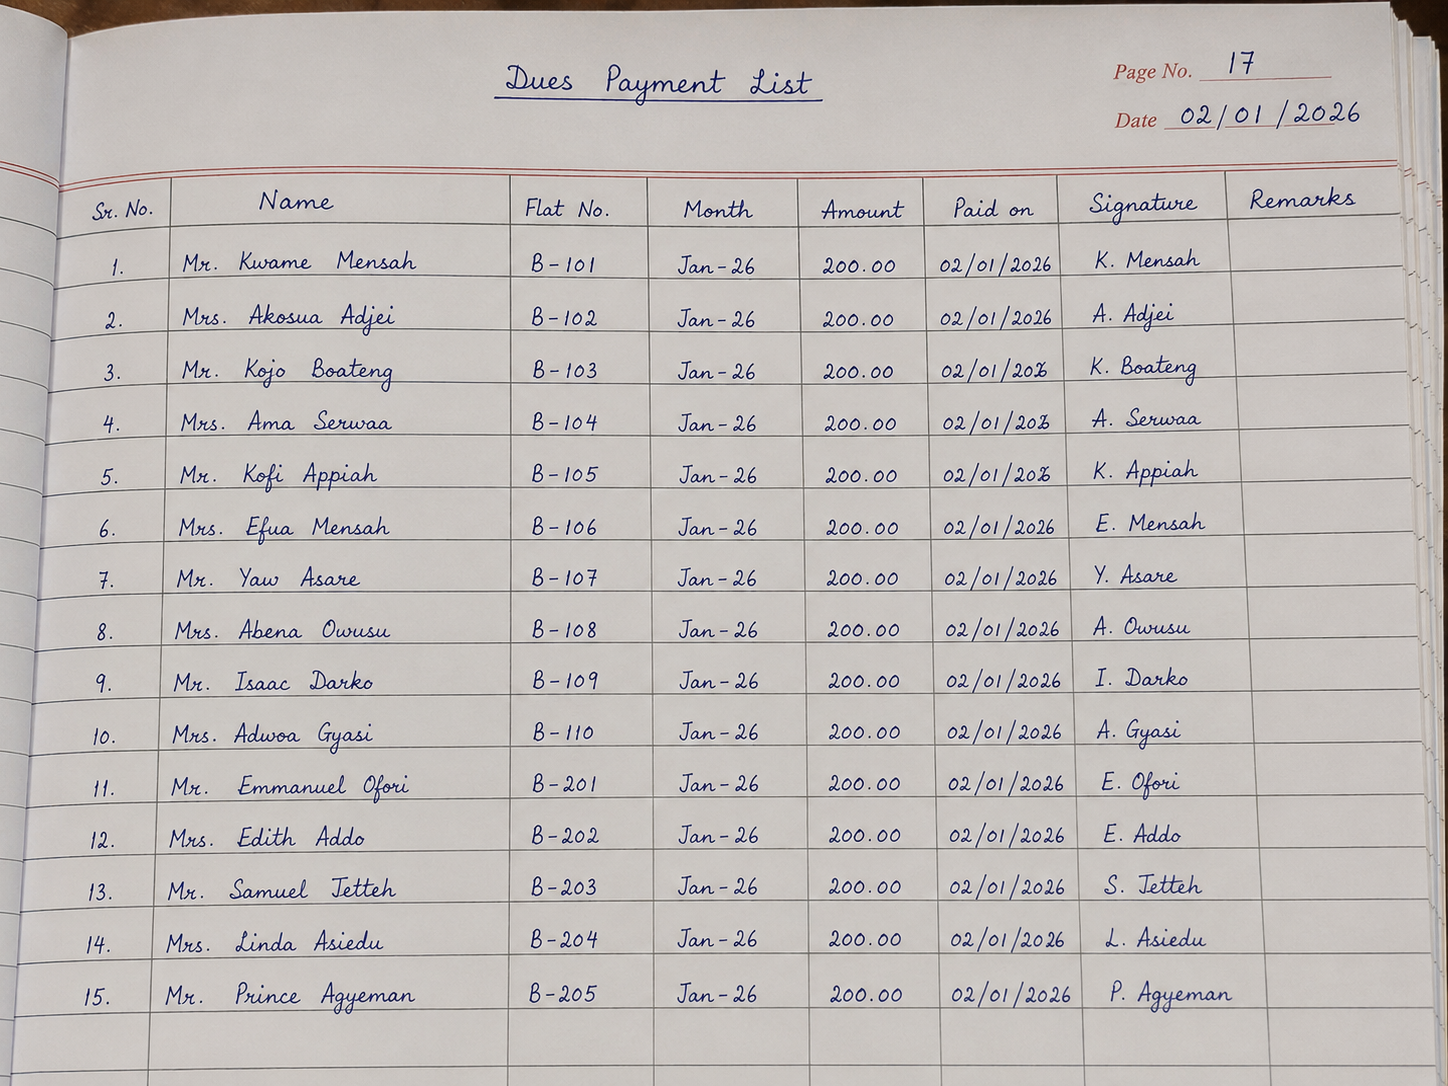 Dues Payment List
Page No. 17
Date 02/01/2026
Sr. No. Name Flat No. Month Amount Paid on Signature Remarks
1. Mr. Kwame Mensah B-101 Jan-26 200.00 02/01/2026 K. Mensah
2. Mrs. Akosua Adjei B-102 Jan-26 200.00 02/01/2026 A. Adjei
3. Mr. Kojo Boateng B-103 Jan-26 200.00 K. Boateng
4. Mrs. Ama Serwaa B-104 Jan-26 200.00 A. Serwaa
5. Mr. Kofi Appiah B-105 Jan-26 200.00 K. Appiah
6. Mrs. Efua Mensah B-106 Jan-26 200.00 02/01/2026 E. Mensah
7. Mr. Yaw Asare B-107 Jan-26 200.00 02/01/2026 Y. Asare
8. Mrs. Abena Owusu B-108 Jan-26 200.00 02/01/2026 A. Owusu
9. Mr. Isaac Darko B-109 Jan-26 200.00 02/01/2026 I. Darko
10. Mrs. Adwoa Gyasi B-110 Jan-26 200.00 02/01/2026 A. Gyasi
11. Mr. Emmanuel Ofori B-201 Jan-26 200.00 02/01/2026 E. Ofori
12. Mrs. Edith Addo B-202 Jan-26 200.00 02/01/2026 E. Addo
13. Mr. Samuel Tetteh B-203 Jan-26 200.00 02/01/2026 S. Tetteh
14. Mrs. Linda Asiedu B-204 Jan-26 200.00 02/01/2026 L. Asiedu
15. Mr. Prince Agyeman B-205 Jan-26 200.00 02/01/2026 P. Agyeman